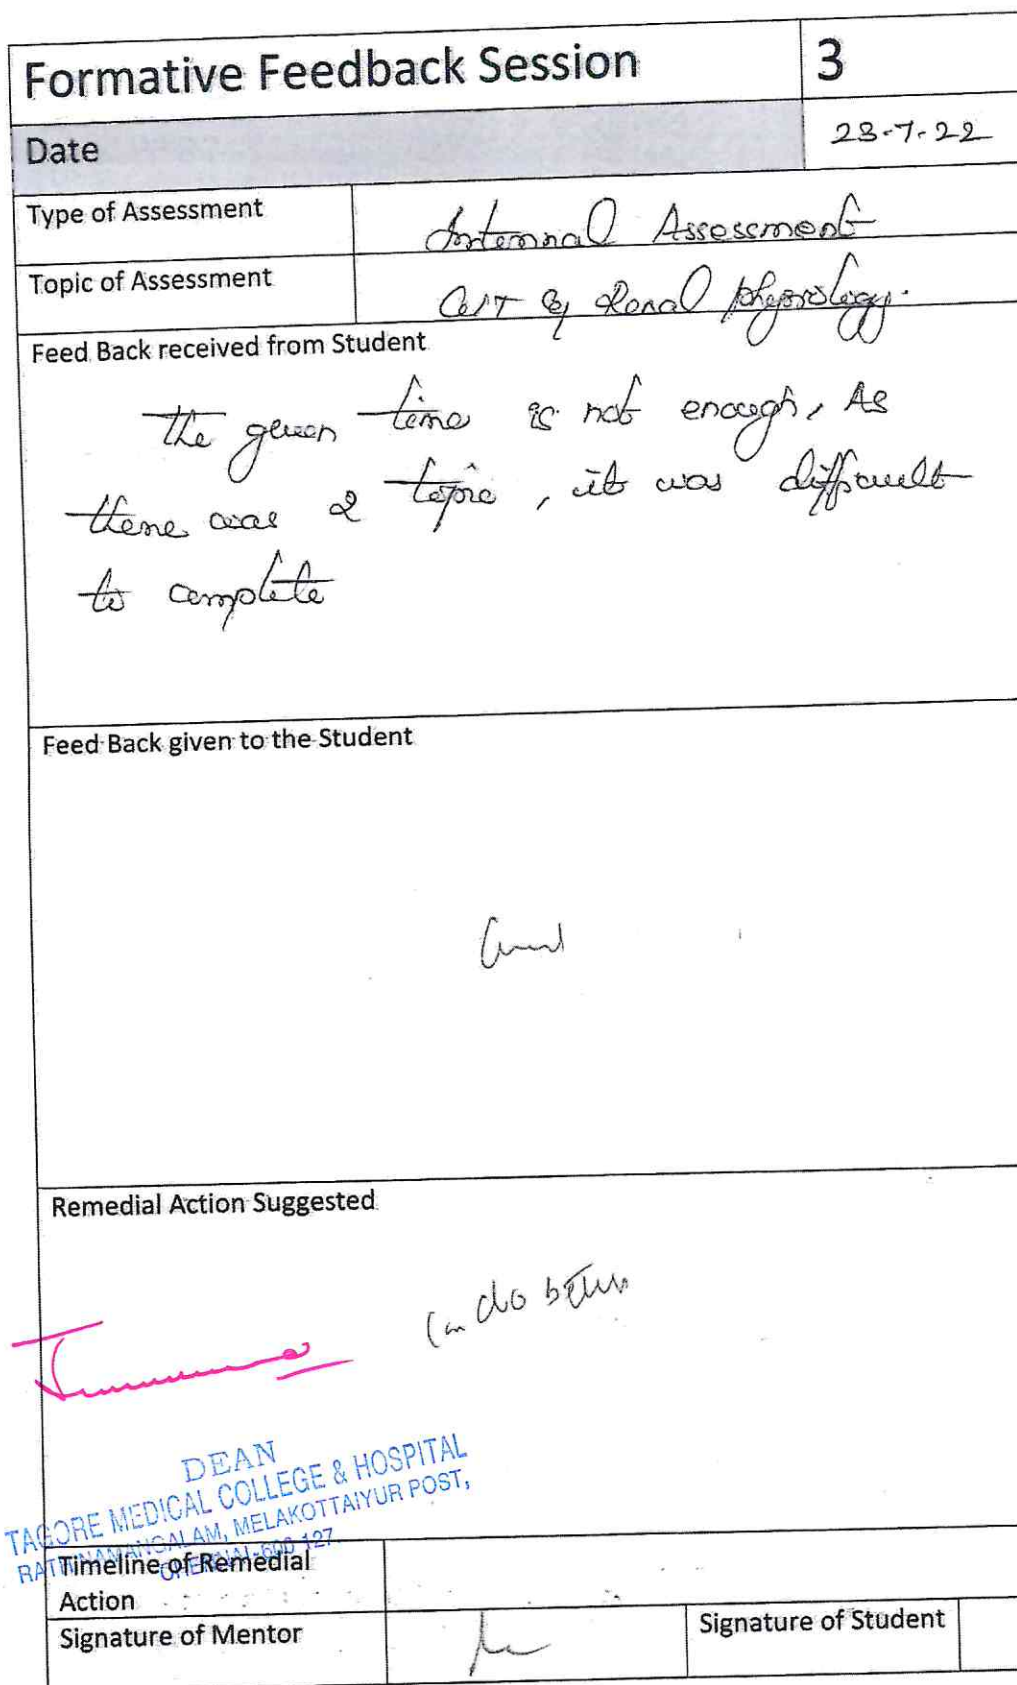 Formative Feedback Session 3
Date 23-7-22
Type of Assessment Internal Assessment
Topic of Assessment GIT & Renal physiology.
Feed Back received from Student
the given time is not enough, As
there was 2 topic, it was difficult
to complete
Feed Back given to the Student
Good
Remedial Action Suggested
Can do better
DEAN
TAGORE MEDICAL COLLEGE & HOSPITAL
RATHINAMANGALAM, MELAKOTTAIYUR POST,
CHENNAI-600 127
Timeline of Remedial
Action
Signature of Mentor Signature of Student